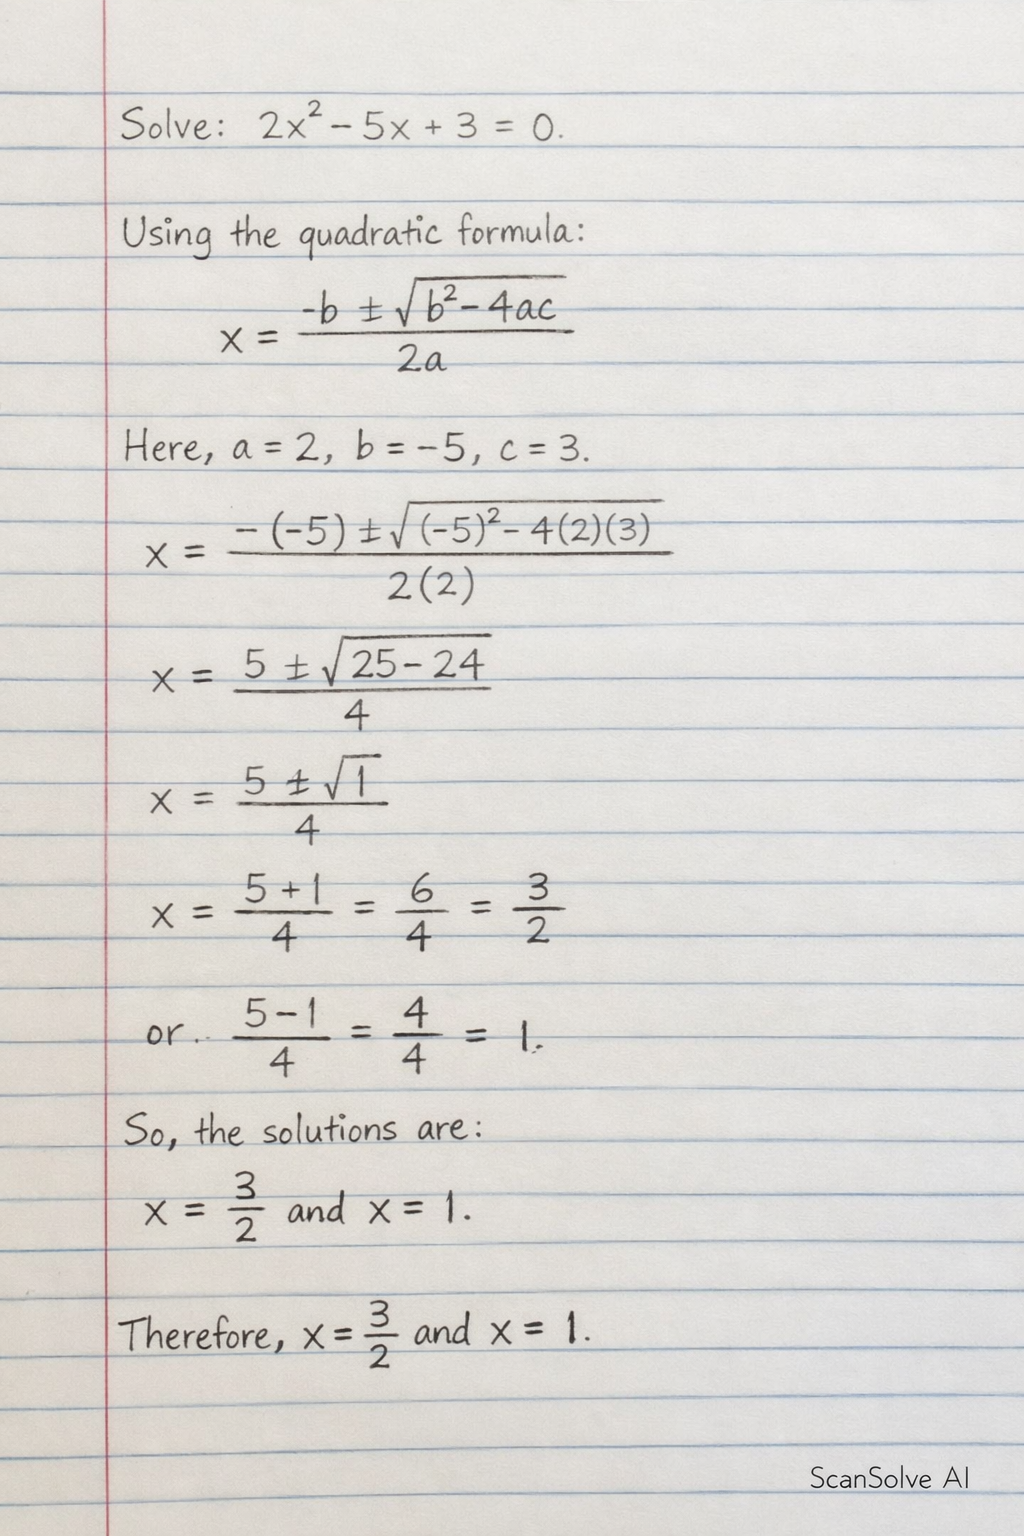 Solve: 2x² - 5x + 3 = 0.
Using the quadratic formula:
x = (-b ± √(b² - 4ac)) / 2a
Here, a = 2, b = -5, c = 3.
x = (-(-5) ± √((-5)² - 4(2)(3))) / 2(2)
x = (5 ± √(25 - 24)) / 4
x = (5 ± √1) / 4
x = (5 + 1)/4 = 6/4 = 3/2
or.. (5 - 1)/4 = 4/4 = 1.
So, the solutions are:
x = 3/2 and x = 1.
Therefore, x = 3/2 and x = 1.
ScanSolve AI